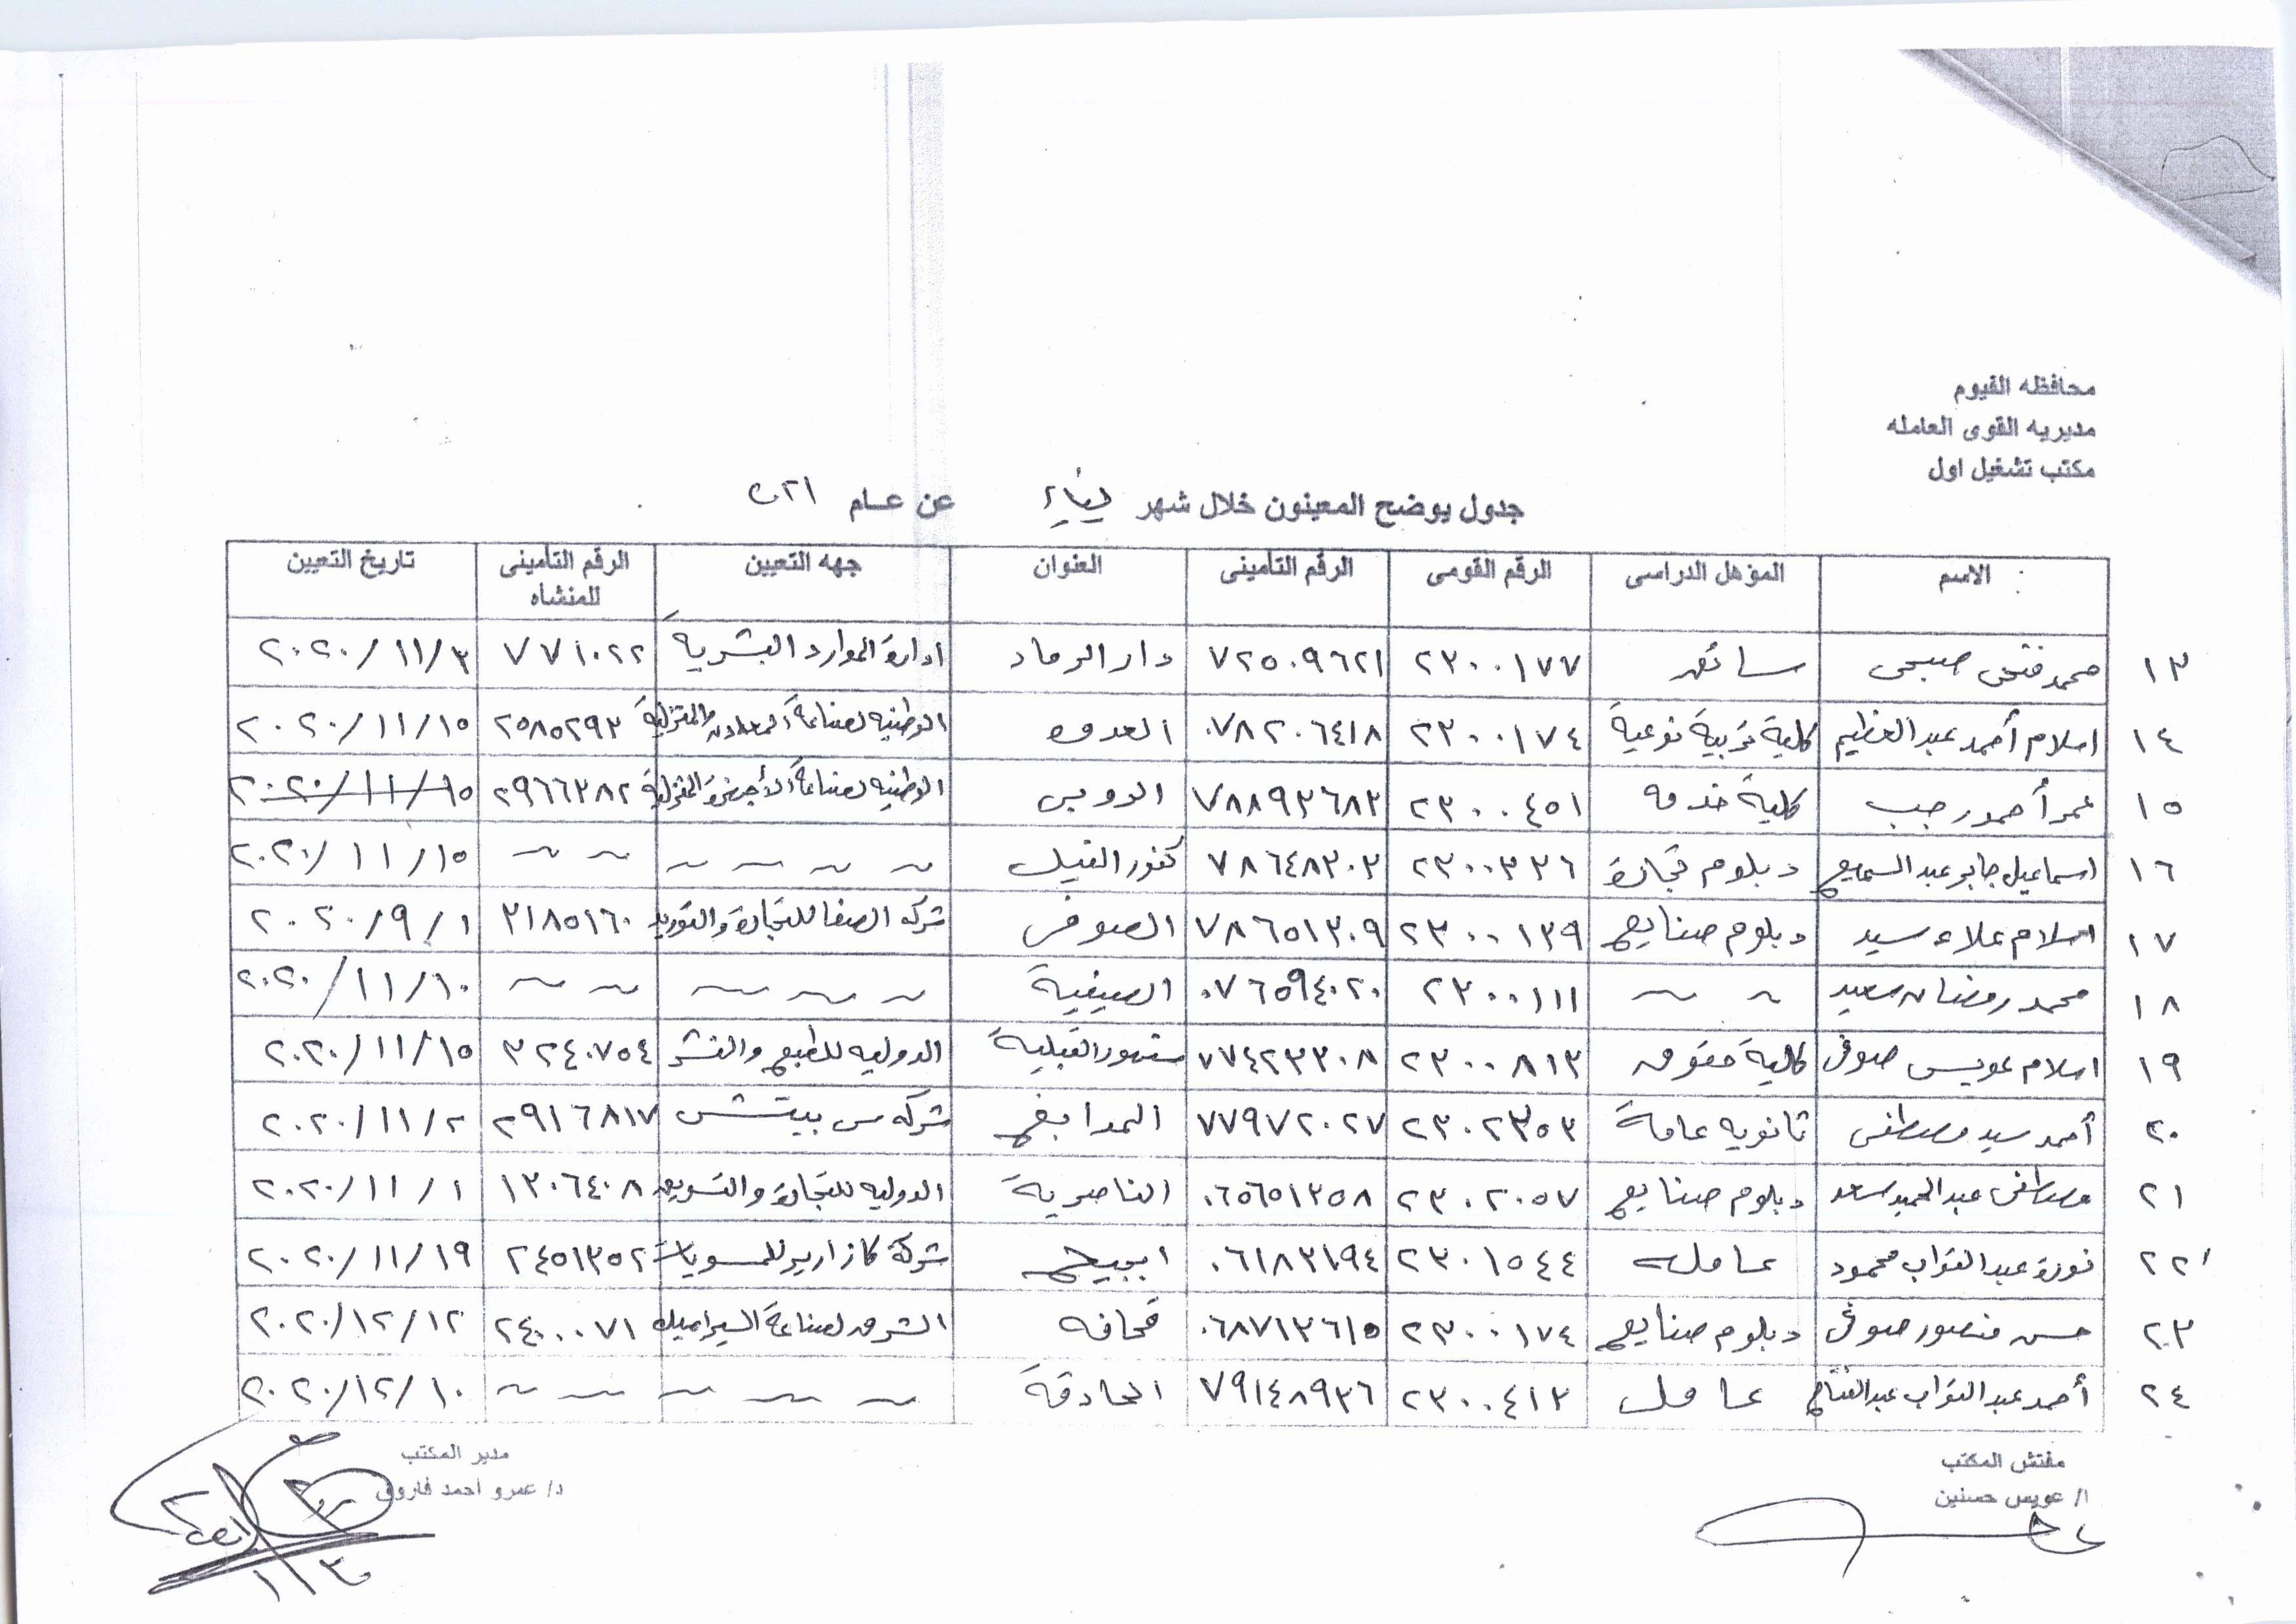 محافظه الفيوم
مديريه القوى العامله
مكتب تشغيل اول
جدول يوضح المعينون خلال شهر يناير عن عام ٢٠٢١
الاسم المؤهل الدراسى الرقم القومى الرقم التأمينى العنوان جهه التعيين الرقم التأمينى للمنشاه تاريخ التعيين
١٣ محمد فتحى صبحى سائق ٢٣٠٠١٧٧ ٧٢٥٠٩٦٢١ دار الرماد ادارة الموارد البشرية ٧٧١٠٢٢ ٢٠٢٠/١١/٣
١٤ اسلام أحمد عبد العظيم كلية تربية نوعية ٢٣٠٠١٧٤ ٠٧٨٢٠٦٤١٨ العدوه الوطنيه لصناعة والمنزلية ٢٥٨٥٢٩٣ ٢٠٢٠/١١/١٥
١٥ عمر أحمد رجب كلية خدمه ٢٣٠٠٤٥١ ٧٨٨٩٣٦٨٣ الروبى الوطنيه لصناعة الأجهزة المنزلية ٢٩٦٦٣٨٢ ٢٠٢٠/١١/١٥
١٦ اسماعيل جابر عبد السميع دبلوم تجارة ٢٣٠٠٣٣٦ ٧٨٦٤٨٣٠٣ كفور النيل ~ ~ ~ ~ ~ ~ ٢٠٢٠/١١/١٥
١٧ اسلام علاء سيد دبلوم صنايع ٢٣٠٠١٣٩ ٧٨٦٥١٣٠٩ الصوفى شركه الصفا للتجارة والتوريد ٣١٨٥١٦٠ ٢٠٢٠/٩/١
١٨ محمد رمضان سعيد ~ ~ ٢٣٠٠١١١ ٠٧٦٥٩٤٠٢٠ الصيفية ~ ~ ~ ~ ~ ٢٠٢٠/١١/١٠
١٩ اسلام عويس صوفى كلية حقوق ٢٣٠٠٨١٣ ٧٧٤٢٣٣٠٨ سنهور القبلية الدوليه للطبع والنشر ٣٢٤٠٧٥٤ ٢٠٢٠/١١/١٥
٢٠ أحمد سيد مصطفى ثانويه عامة ٢٣٠٢٣٥٣ ٧٧٩٧٢٠٢٧ المدابغ شركه سى بيتش ٢٩١٦٨١٧ ٢٠٢٠/١١/٢
٢١ مصطفى عبد الحميد سعد دبلوم صنايع ٢٣٠٢٠٥٧ ٠٦٥٦٥١٣٥٨ الناصرية الدوليه للتجارة والتسويق ١٣٠٦٤٠٨ ٢٠٢٠/١١/١
٢٢ نورة عبد التواب محمود عامله ٢٣٠١٥٤٤ ٠٦١٨٣١٩٤ ابجيج شركة كازارير ٢٤٥١٣٥٢ ٢٠٢٠/١١/١٩
٢٣ حسن منصور صوفى دبلوم صنايع ٢٣٠٠١٧٤ ٠٦٨٧١٣٦١٥ قحافه الشرق لصناعة السيراميك ٢٤٠٠٠٧١ ٢٠٢٠/١٢/١٢
٢٤ أحمد عبد التواب عبد الفتاح عامل ٢٣٠٠٤١٣ ٧٩١٤٨٩٣٦ الحادقة ~ ~ ~ ~ ~ ٢٠٢٠/١٢/١٠
مفتش المكتب
ا/ عويس حسنين
مدير المكتب
د/ عمرو احمد فاروق
١/٣